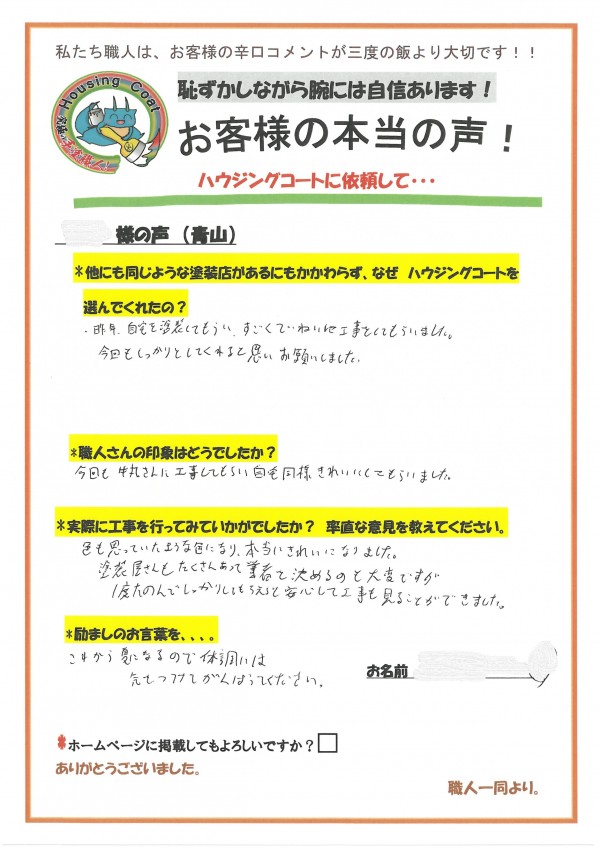 私たち職人は、お客様の辛口コメントが三度の飯より大切です！！
Housing Coat
恥ずかしながら腕には自信あります！
お客様の本当の声！
ハウジングコートに依頼して・・・
様の声（青山）
＊他にも同じような塗装店があるにもかかわらず、なぜ　ハウジングコートを
選んでくれたの？
・昨年、自宅を塗装してもらい、すごくていねいな工事をしてもらいました。
今回もしっかりとしてくれると思い お願いしました。
＊職人さんの印象はどうでしたか？
今回も 牛丸さんに工事してもらい 自宅同様 きれいにしてもらいました。
＊実際に工事を行ってみていかがでしたか？　率直な意見を教えてください。
色も思っていたような色になり、本当にきれいになりました。
塗装屋さんもたくさんあって 業者を決めるのも大変ですが
1度たのんでしっかりしてもらえると安心して工事も見ることができました。
＊励ましのお言葉を、、、。
これから夏になるので体調には
気をつけてがんばってください。
お名前
ホームページに掲載してもよろしいですか？□
ありがとうございました。
職人一同より。